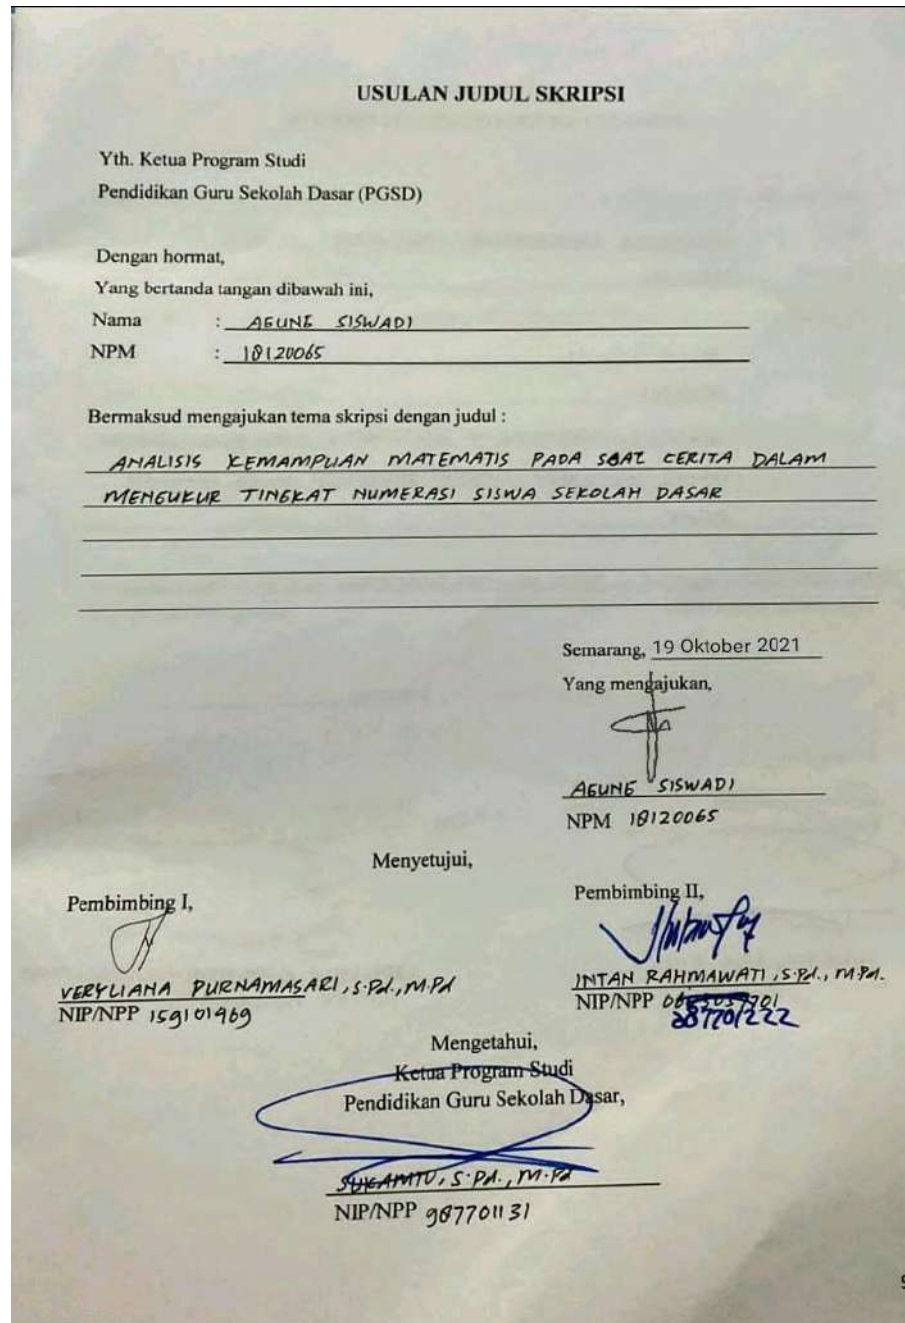 USULAN JUDUL SKRIPSI
Yth. Ketua Program Studi
Pendidikan Guru Sekolah Dasar (PGSD)
Dengan hormat,
Yang bertanda tangan dibawah ini,
Nama : AGUNG SISWADI
NPM : 18120065
Bermaksud mengajukan tema skripsi dengan judul :
ANALISIS KEMAMPUAN MATEMATIS PADA SOAL CERITA DALAM
MENGUKUR TINGKAT NUMERASI SISWA SEKOLAH DASAR
Semarang, 19 Oktober 2021
Yang mengajukan,
AGUNG SISWADI
NPM 18120065
Menyetujui,
Pembimbing I,
VERYLIANA PURNAMASARI, S.Pd., M.Pd
NIP/NPP 159101469
Pembimbing II,
INTAN RAHMAWATI, S.Pd., M.Pd.
NIP/NPP
087701222
Mengetahui,
Ketua Program Studi
Pendidikan Guru Sekolah Dasar,
SUKAMTO, S.Pd., M.Pd
NIP/NPP 987701131